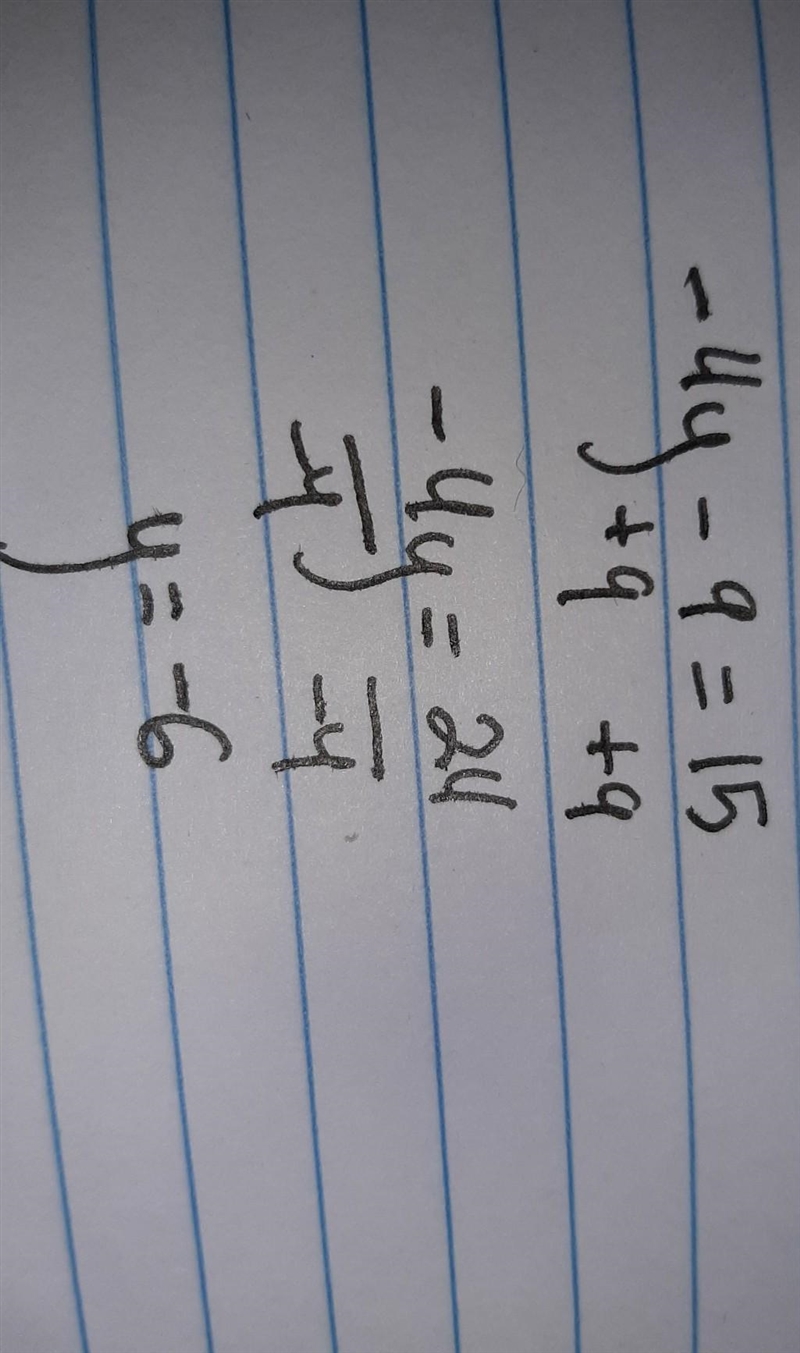 -4y - 9 = 15
+9 +9
-4y = 24
-4 -4
y = -6